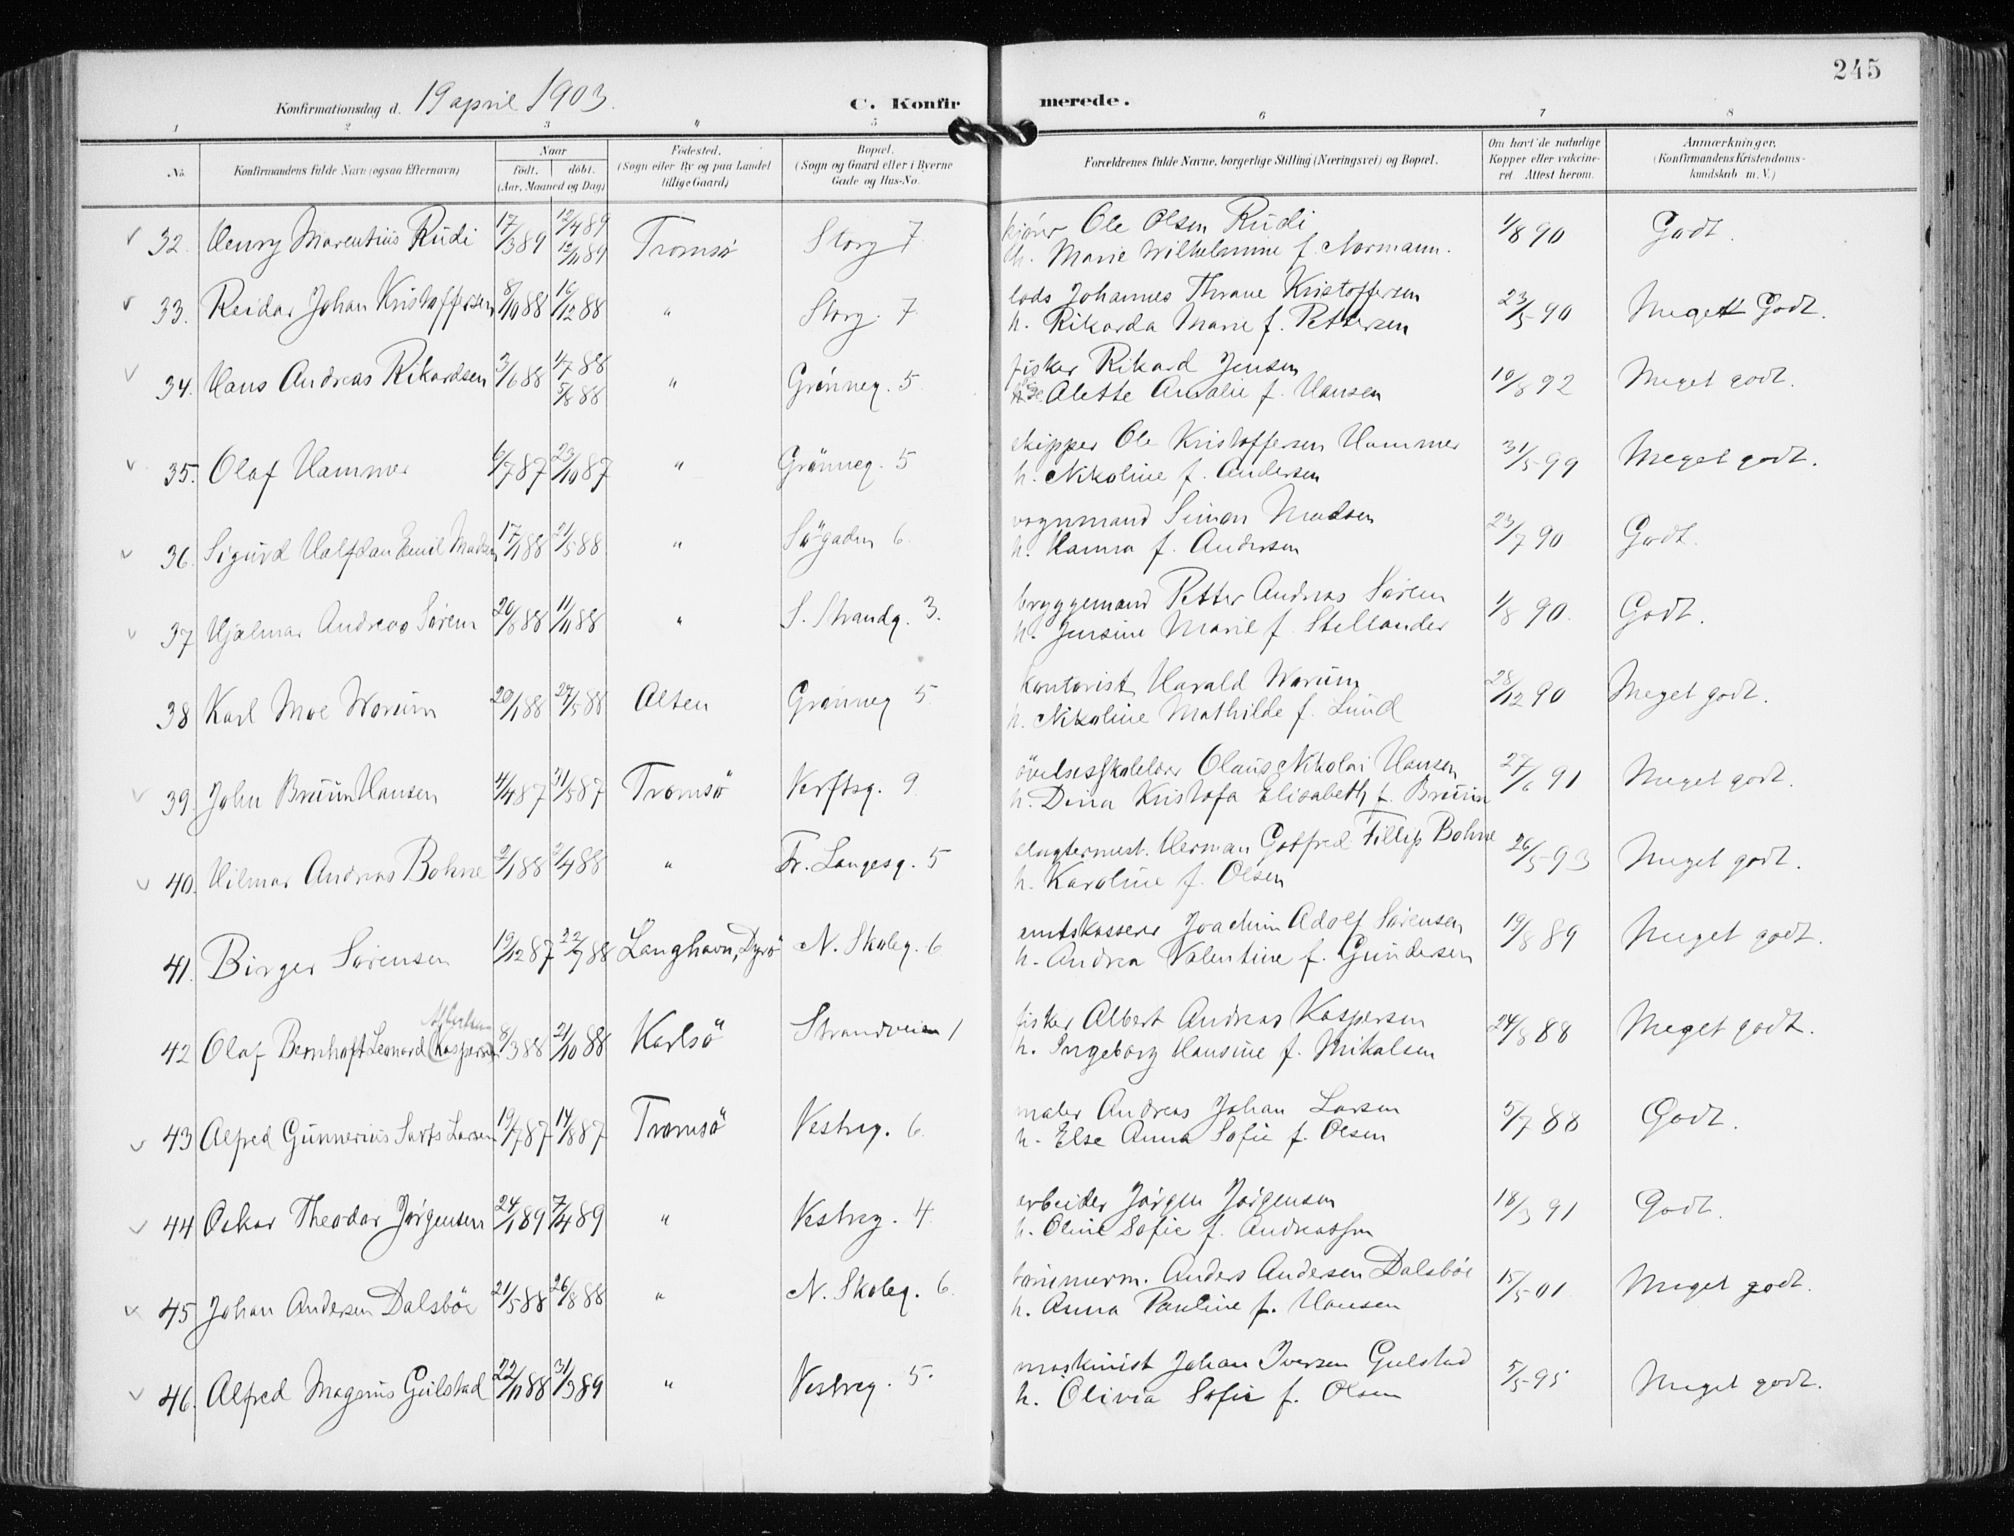 245
Konfirmationsdag d. 19 april 1903.
C. Konfirmerede.
1 2 3 " 5 6 7 8
No. Konfirmandens fulde Navn (ogsaa Efternavn) Naar født. døbt. (Aar, Maaned og Dag) Fødested. (Sogn eller By og paa Landet tillige Gaard) Bopæl. (Sogn og Gaard eller i Byerne Gade og Hus-No. Forældrenes fulde Navne, borgerlige Stilling (Næringsvei) og Bopæl. Om havt de naturlige Kopper eller vakcineret. Attest herom. Anmærkninger. (Konfirmandens Kristendomskundskab m. V.)
32. Henry Marentius Rudi 17/3 89 12/4 89 Tromsö Storg 7 Ole Olsen Rudi 1/8 90 Godt.
12/11 89 h. Marie Wilhelmine f. Normann.
33. Reidar Johan Kristoffersen 8/10 88 16/12 88 " Storg. 7 lods Johannes Thrane Kristoffersen 23/5 90 Meget Godt.
h. Rikarda Marie f. Pettersen
34. Hans Andreas Rikardsen 3/6 88 4/7 88 " Grönneg. 5. fisker Rikard Jensen 10/8 92 Meget godt.
5/8 88 Alette Amalie f. Hansen
35. Olaf Hammer 6/7 87 23/10 87 " Grönneg. 5 skipper Ole Kristoffersen Hammer 31/5 99 Meget godt.
h. Nikoline f. Andersen
36. Sigurd Halfdan Emil Madsen 17/1 88 21/5 88 " Sögaden 6. vognmand Simon Madsen 23/7 90 Godt.
h. Hanna f. Andersen
37 Hjalmar Andreas Sörem 20/8 88 11/11 88 " S. Strandg. 3. bryggemand Petter Andreas Sörem 1/8 90. Godt.
h. Jensine Marie f. Stellander
38 Karl Moe Worum 20/1 88 27/5 88 Alten Grönneg 5. kontorist Harald Worum 28/12 90 Meget godt.
h. Nikoline Mathilde f. Lund
39. John Bruun Hansen 4/4 87 31/5 87 Tromsö Verftsg. 9. övelsesskolelærer Olaus Nikolai Hansen 27/6 91 Meget godt.
h. Dina Kristofa Elisabeth f. Bruun
40. Hilmar Andreas Bohne 2/1 88 2/4 88 " Fr. Langesg. 5 slagtermest. Herman Gotfred Fillip Bohne 26/5 93 Meget godt.
h. Karoline f. Olsen
41. Birger Sörensen 19/12 87 22/7 88 Langhavn, Dyrö N. Skoleg. 6 amtskasserer Joachim Adolf Sörensen 19/8 89 Meget godt.
h. Andrea Valentine f. Gundersen
42 Olaf Bernhoft Leonard (Kaspersen) 8/3 88 21/10 88 Karlsö Strandveien 1 fisker Albert Andreas Kaspersen 24/8 88 Meget godt.
h. Ingeborg Hansine f. Mikalsen
43 Alfred Gunnerius Larsen 19/7 87 14/8 87 Tromsö Vestreg. 6. maler Andreas Johan Larsen 5/7 88 Godt.
h. Else Anna Sofie f. Olsen
44 Oskar Theodor Jörgensen 24/1 89 7/4 89 " Vestreg. 4. arbeider Jörgen Jörgensen 18/3 91 Godt.
h. Oline Sofie f. Andreassen
45 Johan Andersen Dalsböe 21/5 88 26/8 88 " N. Skoleg. 6. tömmerm. Anders Andersen Dalsböe 15/5 01. Meget godt.
h. Anna Pauline f. Hansen
46. Alfred Magnus Gulstad 22/11 88 31/3 89 " Vestreg. 5. maskinist Johan Iversen Gulstad 5/5 95 Meget godt.
h. Olivia Sofie f. Olsen